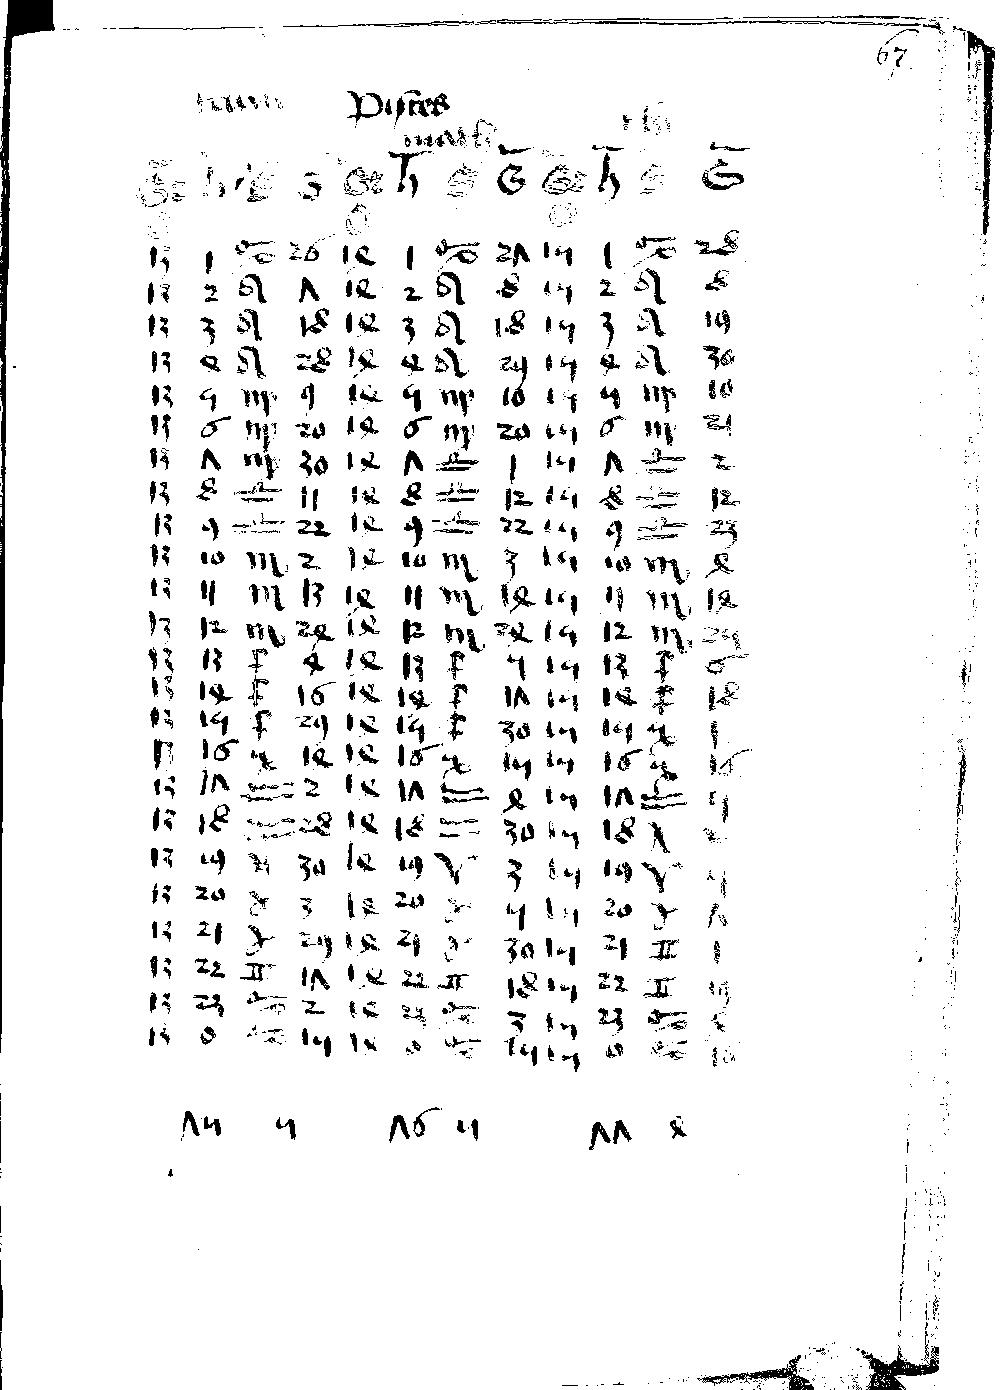 67
Pisces
G h S G G h S G G h S G
13 1 ♋ 26 14 1 ♋ 27 15 1 ♋ 28
13 2 ♌ 7 14 2 ♌ 8 15 2 ♌ 8
13 3 ♌ 18 14 3 ♌ 18 15 3 ♌ 19
13 4 ♌ 28 14 4 ♌ 29 15 4 ♌ 30
13 5 ♍ 9 14 5 ♍ 10 15 5 ♍ 10
13 6 ♍ 20 14 6 ♍ 20 15 6 ♍ 21
13 7 ♍ 30 14 7 ♎ 1 15 7 ♎ 2
13 8 ♎ 11 14 8 ♎ 12 15 8 ♎ 12
13 9 ♎ 22 14 9 ♎ 22 15 9 ♎ 23
13 10 ♏ 2 14 10 ♏ 3 15 10 ♏ 4
13 11 ♏ 13 14 11 ♏ 14 15 11 ♏ 14
13 12 ♏ 24 14 12 ♏ 24 15 12 ♏ 25
13 13 ♐ 4 14 13 ♐ 5 15 13 ♐ 6
13 14 ♐ 16 14 14 ♐ 17 15 14 ♐ 18
13 15 ♐ 29 14 15 ♐ 30 15 15 ♑ 1
13 16 ♑ 14 14 16 ♑ 15 15 16 ♑ 16
13 17 ♒ 2 14 17 ♒ 4 15 17 ♒ 5
13 18 ♒ 28 14 18 ♒ 30 15 18
13 19 30 14 19 ♈ 3 15 19 ♈ 5
13 20 ♉ 3 14 20 ♉ 5 15 20 ♉ 7
13 21 ♉ 29 14 21 ♉ 30 15 21 ♊ 1
13 22 ♊ 17 14 22 ♊ 18 15 22 ♊ 19
13 23 ♋ 2 14 23 ♋ 3 15 23 ♋
13 0 ♋ 15 14 0 ♋ 15 15 0 ♋ 16
75 5 76 5 77 4